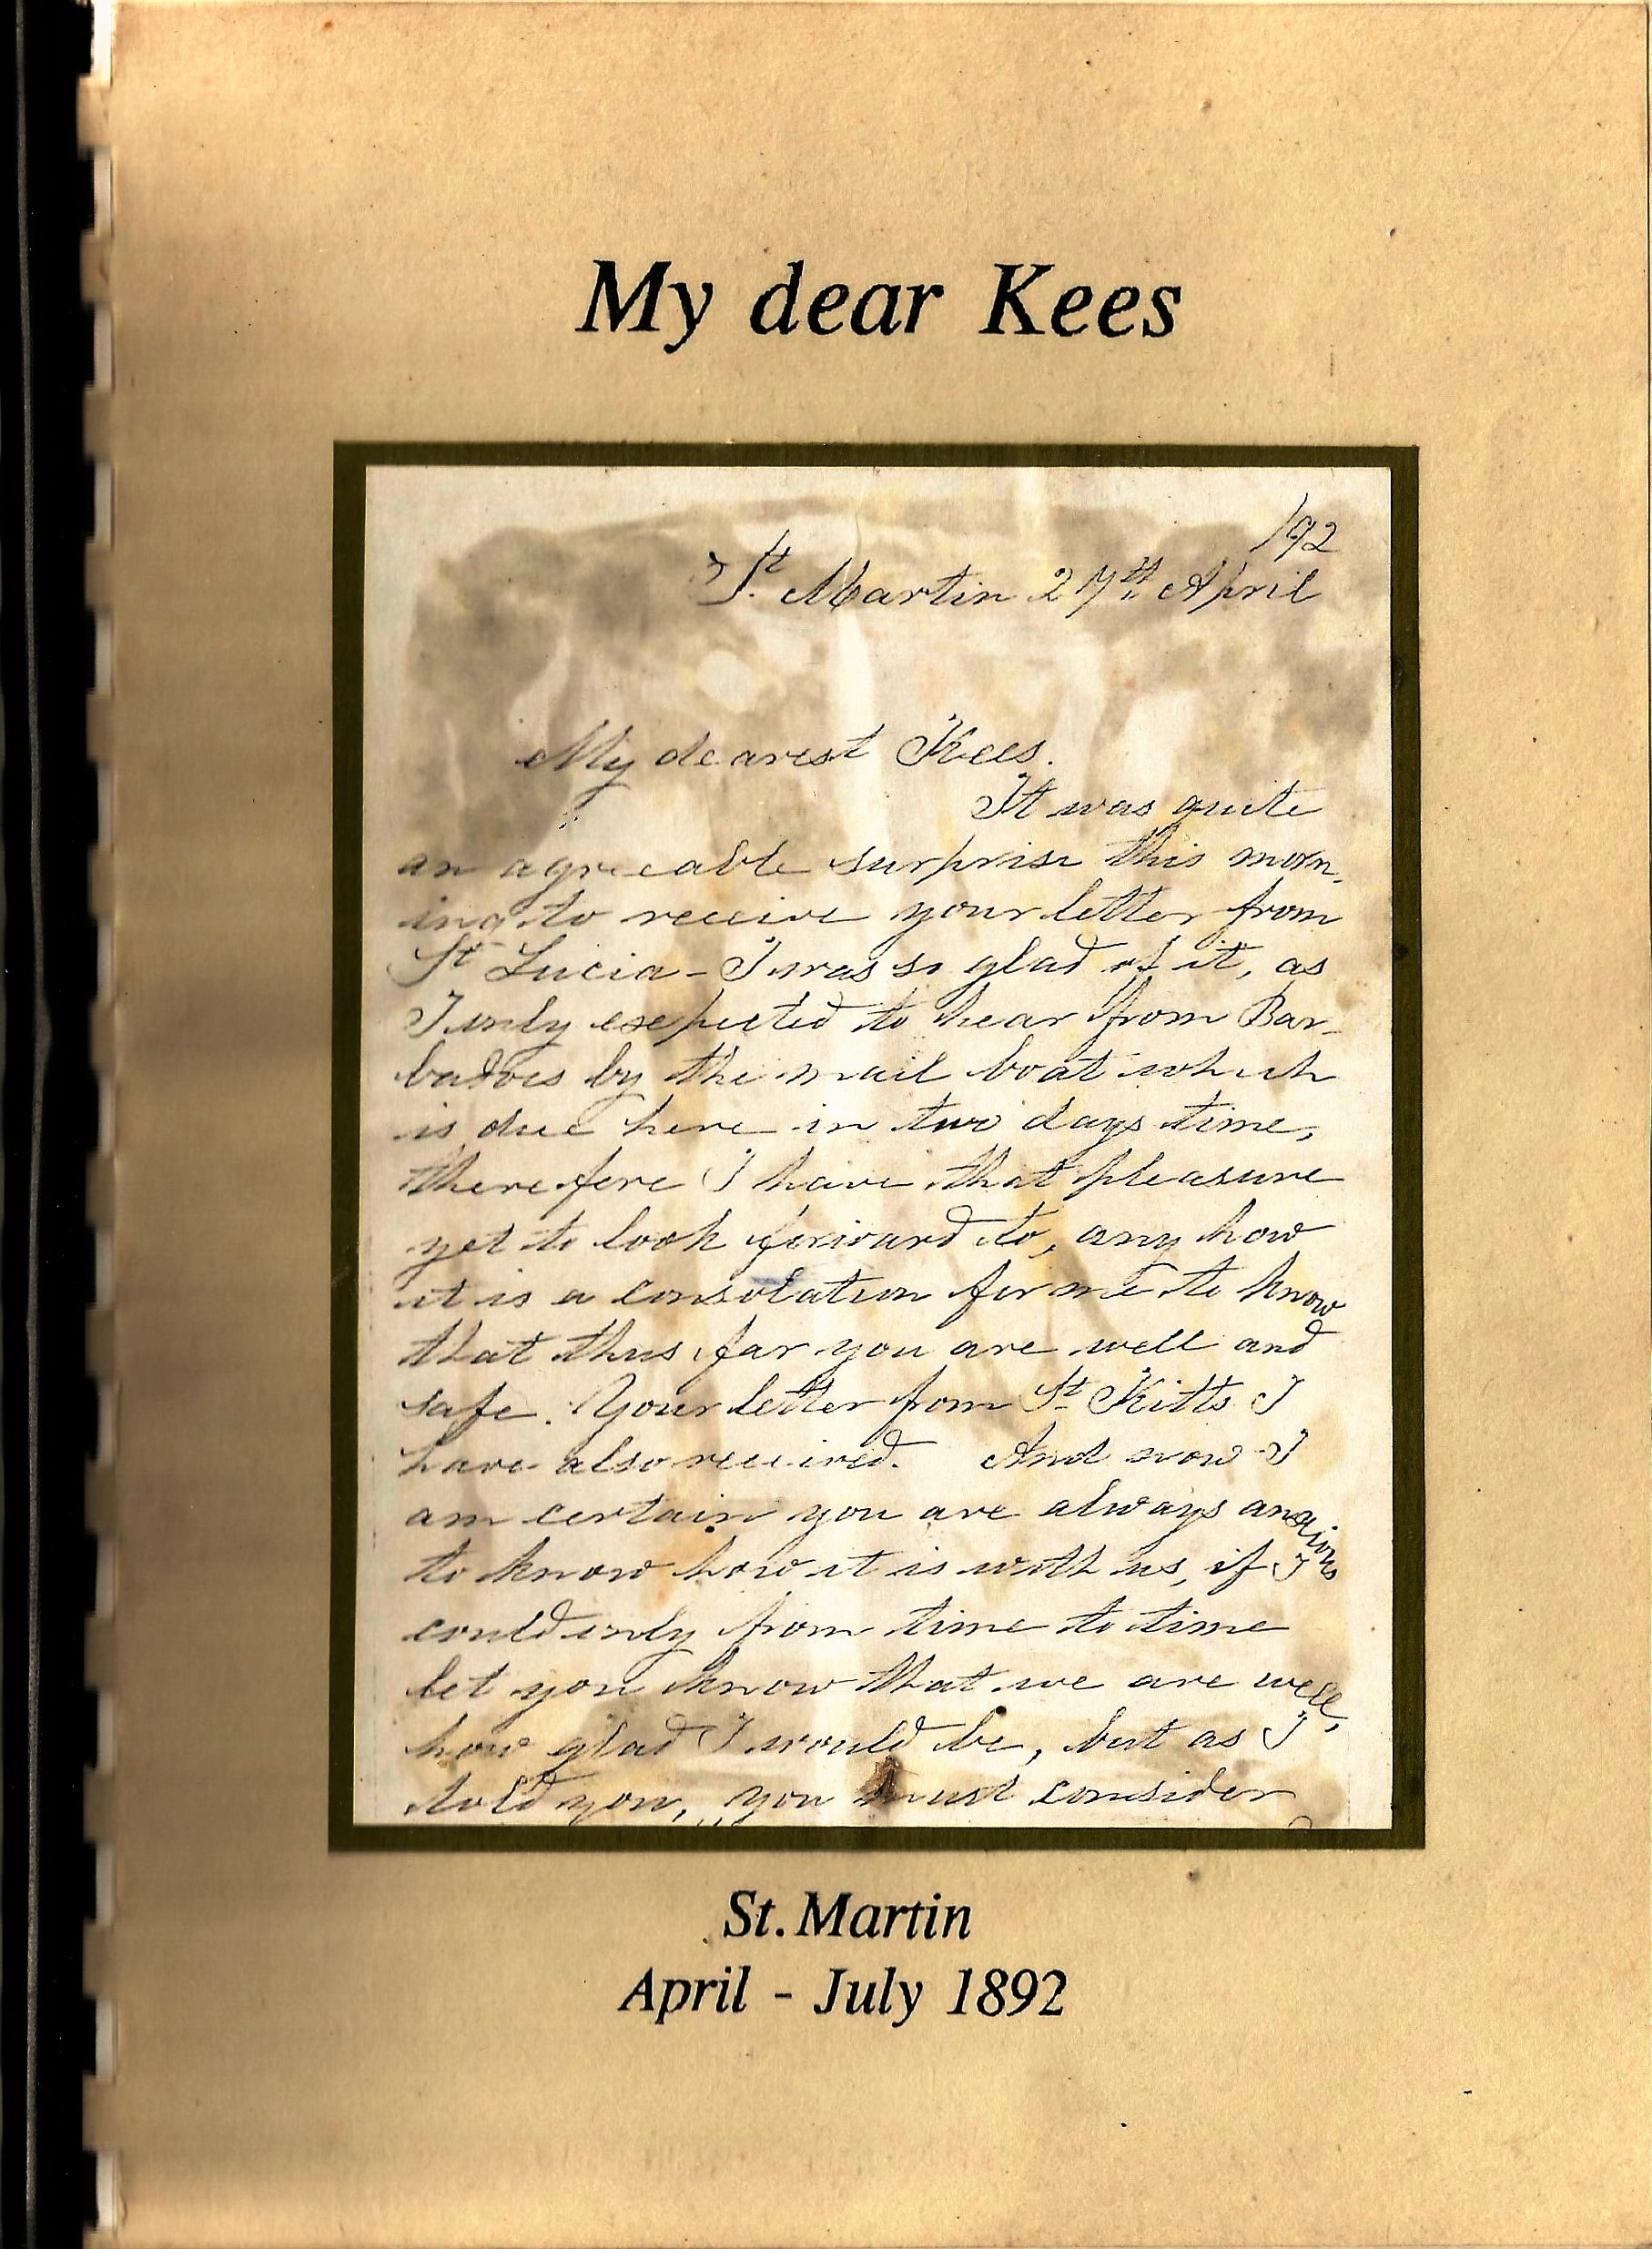 My dear Kees
/92
St. Martin 27th April
My dearest Kees.
It was quite
an agreeable surprise this morn-
ing to receive your letter from
St Lucia - I was so glad of it, as
I only expected to hear from Bar-
badoes by the mail boat which
is due here in two days time,
therefore I have that pleasure
yet to look forward to, any how
it is a consolation for me to know
that thus far you are well and
safe. Your letter from St. Kitts I
have also received. And now I
am certain you are always anxious
to know how it is with us, if I
could only from time to time
let you know that we are well,
how glad I would be, but as I
told you, you must consider
St. Martin
April - July 1892